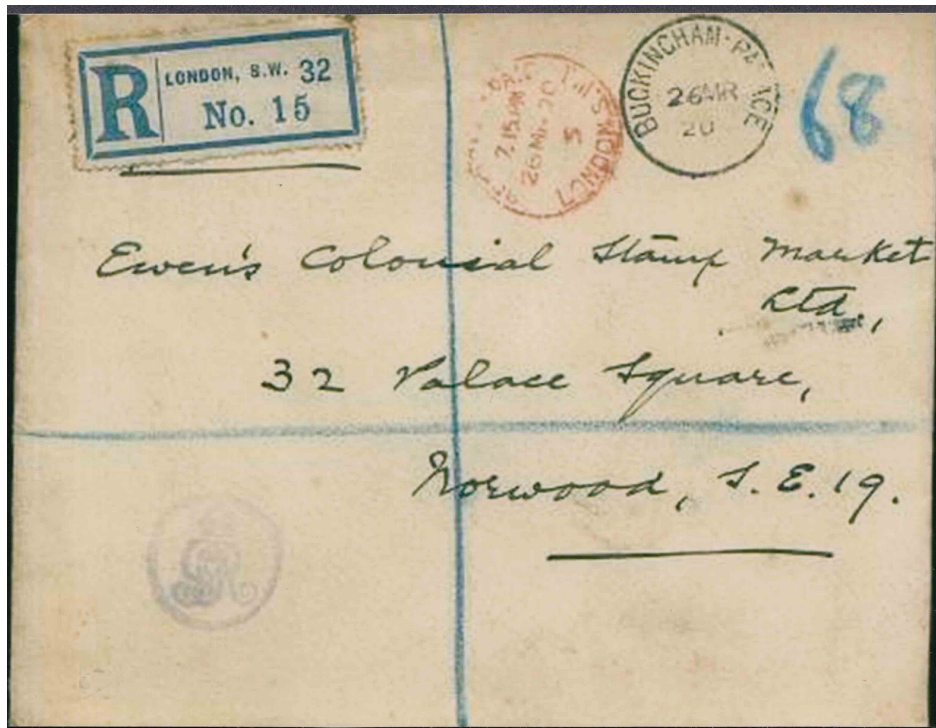 R LONDON, S.W. 32
No. 15
7.15 PM
26 MR 20
S
LONDON
BUCKINGHAM PALACE
26 MR
20
68
Ewen's Colonial Stamp Market
Ltd.,
32 Palace Square,
Norwood, S.E. 19.